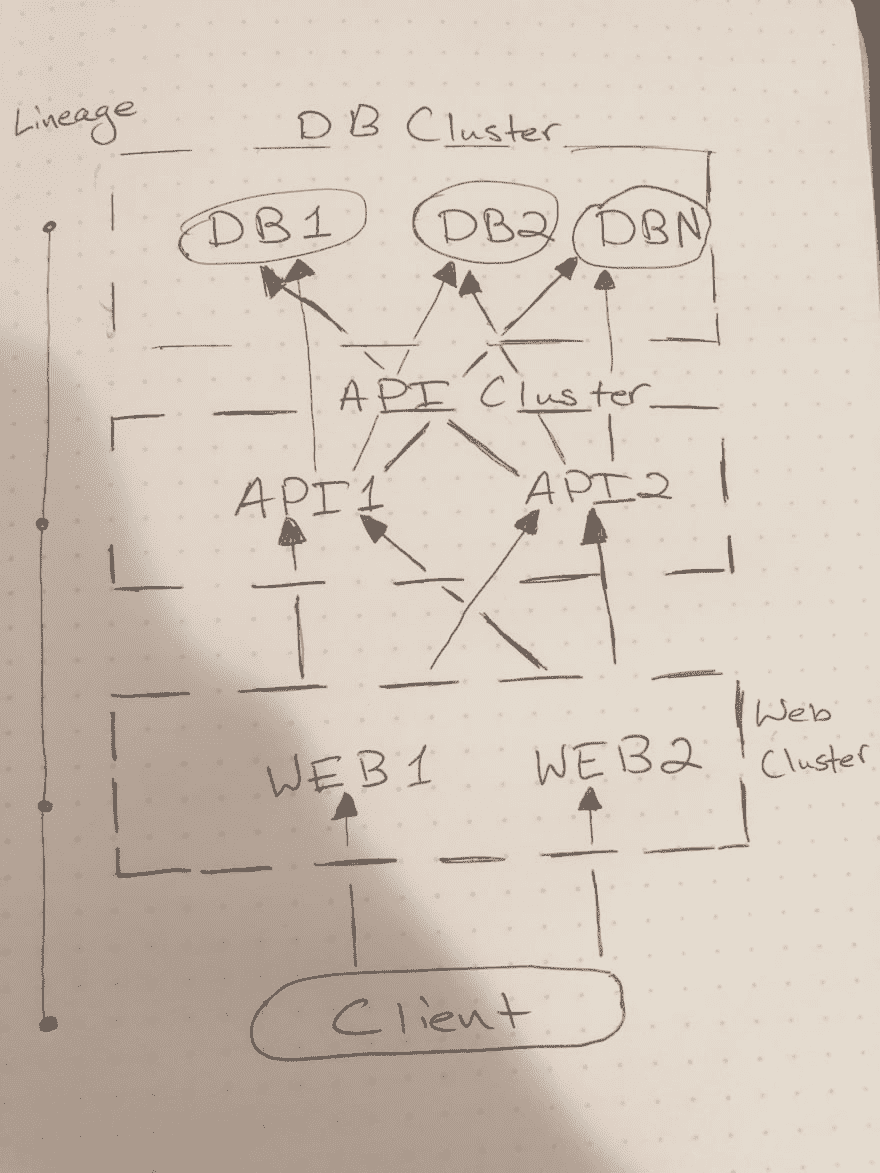 Lineage
DB Cluster
DB1 DB2 DBN
API Cluster
API1 API2
Web
Cluster
WEB1 WEB2
Client